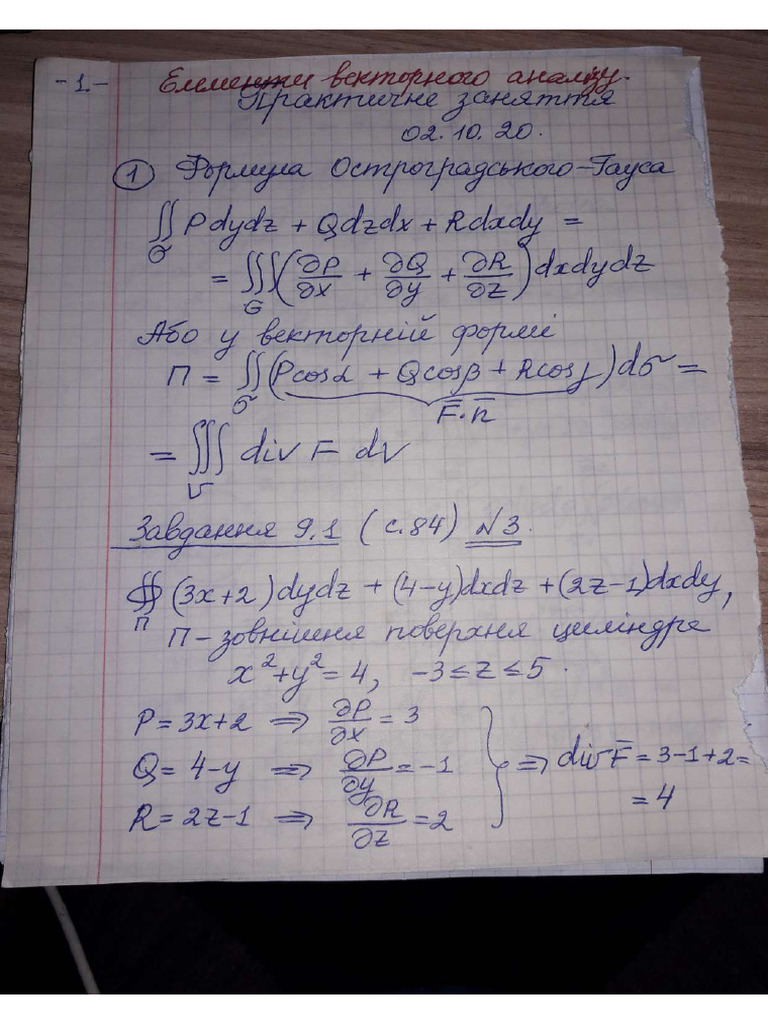 -1.-
Елементи векторного аналізу.
Практичне заняття
02.10.20.
① Формула Остроградського-Гауса
∬_σ Pdydz + Qdzdx + Rdxdy =
= ∭_G (∂P/∂x + ∂Q/∂y + ∂R/∂z) dxdydz
Або у векторній формі
П = ∬_σ (Pcosα + Qcosβ + Rcosγ) dσ =
F̄·n̄
= ∭_V div F dV
Завдання 9.1 (с.84) №3.
∯_П (3x+2)dydz + (4-y)dxdz + (2z-1)dxdy,
П - зовнішня поверхня циліндра
x² + y² = 4, -3 ≤ z ≤ 5.
P = 3x+2 ⇒ ∂P/∂x = 3
Q = 4-y ⇒ ∂P/∂y = -1 } ⇒ div F̄ = 3-1+2 =
R = 2z-1 ⇒ ∂R/∂z = 2
= 4